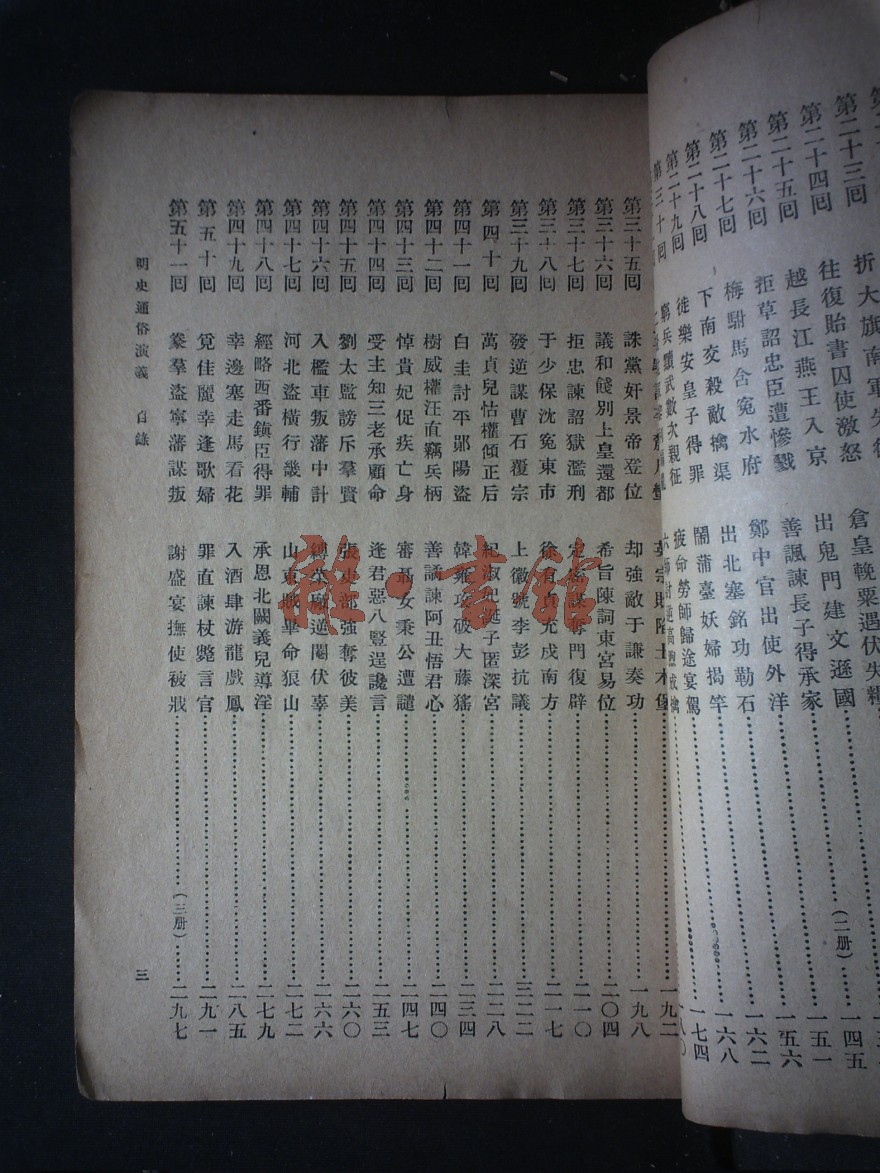 第二十三回 折大旗南軍失
第二十四回 往復貽書囚使激怒 倉皇輓粟遇伏失糧
第二十五回 越長江燕王入京 出鬼門建文遜國 (二册) 一四五
第二十六回 拒草詔忠臣遭慘戮 善諷諫長子得承家 一五一
第二十七回 梅駙馬含冤水府 鄭中官出使外洋 一五六
第二十八回 下南交殺敵擒渠 出北塞銘功勒石 一六二
第二十九回 徙樂安皇子得罪 鬧蒲臺妖婦揭竿 一六八
第三十回 窮兵黷武數次親征 疲命勞師歸途宴駕 一七四
英宗 陷土木堡 一九二
第三十五回 誅黨奸景帝登位 却強敵于謙奏功 一九八
第三十六回 議和餞別上皇還都 希旨陳詞東宮易位 二〇四
第三十七回 拒忠諫詔獄濫刑 定密謀奪門復辟 二一〇
第三十八回 于少保沈冤東市 徐有貞充戍南方 二一七
第三十九回 發逆謀曹石覆宗 上徽號李彭抗議 三二二
第四十回 萬貞兒怙權傾正后 紀淑妃誕子匿深宮 二二八
第四十一回 白圭討平鄖陽盜 韓雍攻破大藤猺 二三四
第四十二回 樹威權汪直竊兵柄 善譎諫阿丑悟君心 二四〇
第四十三回 悼貴妃促疾亡身 審聶女秉公遭譴 二四七
第四十四回 受主知三老承顧命 逢君惡八豎逞讒言 二五三
第四十五回 劉太監謗斥羣賢 張吏部強奪彼美 二六〇
第四十六回 入檻車叛藩中計 縛菜廠逆閹伏辜 二六六
第四十七回 河北盜橫行畿輔 山東賊畢命狼山 二七二
第四十八回 經略西番鎮臣得罪 承恩北闕義兒導淫 二七九
第四十九回 幸邊塞走馬看花 入酒肆游龍戲鳳 二八五
第五十回 覓佳麗幸逢歌婦 罪直諫杖斃言官 二九一
第五十一回 豢羣盜寧藩謀叛 謝盛宴撫使被戕 (三册) 二九七
明史通俗演義 目錄 三
雜·書館